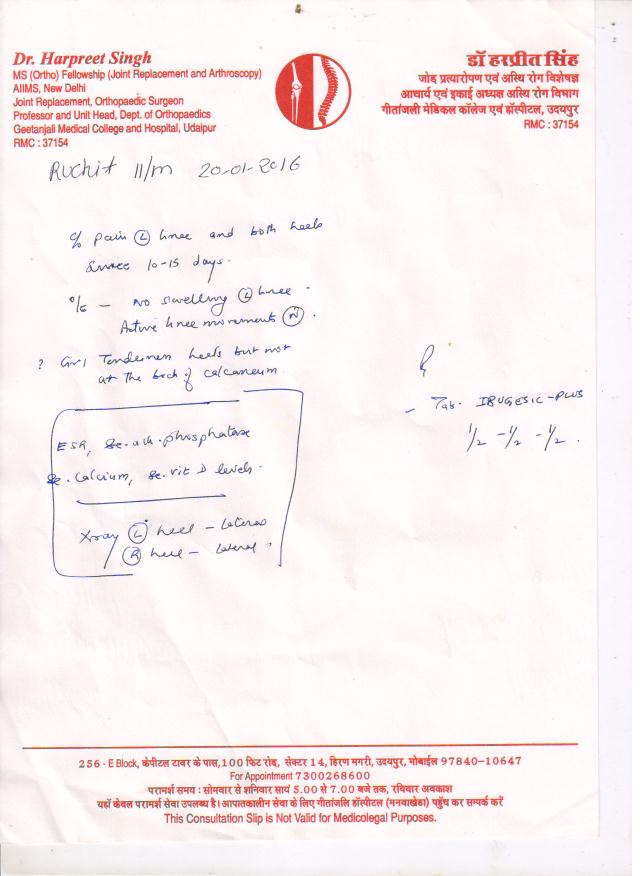 Dr. Harpreet Singh
MS (Ortho) Fellowship (Joint Replacement and Arthroscopy)
AIIMS, New Delhi
Joint Replacement, Orthopaedic Surgeon
Professor and Unit Head, Dept. of Orthopaedics
Geetanjali Medical College and Hospital, Udaipur
RMC : 37154
डॉ हरप्रीत सिंह
जोड प्रत्यारोपण एवं अस्थि रोग विशेषज्ञ
आचार्य एवं इकाई अध्यक्ष अस्थि रोग विभाग
गीतांजली मेडिकल कॉलेज एवं हॉस्पीटल, उदयपुर
RMC : 37154
Ruchit 11/m 20-01-2016
c/o pain (L) knee and both heels
since 10-15 days.
o/e – No swelling (L) knee.
Active knee movements (N).
? Tenderness heels but not
at the back of calcaneum.
ESR, Se. alk. phosphatase
Se. Calcium, Se. vit D levels.
Xray (L) heel – lateral
(R) heel – lateral.
Rx
– Tab. IBUGESIC-PLUS
1/2 – 1/2 – 1/2.
256 - E Block, केपीटल टावर के पास, 100 फिट रोड, सेक्टर 14, हिरण मगरी, उदयपुर, मोबाईल 97840-10647
For Appointment 7300268600
परामर्श समय : सोमवार से शनिवार सायं 5.00 से 7.00 बजे तक, रविवार अवकाश
यहाँ केवल परामर्श सेवा उपलब्ध है। आपातकालीन सेवा के लिए गीतांजलि हॉस्पीटल (मनवाखेडा) पहुँच कर सम्पर्क करें
This Consultation Slip is Not Valid for Medicolegal Purposes.